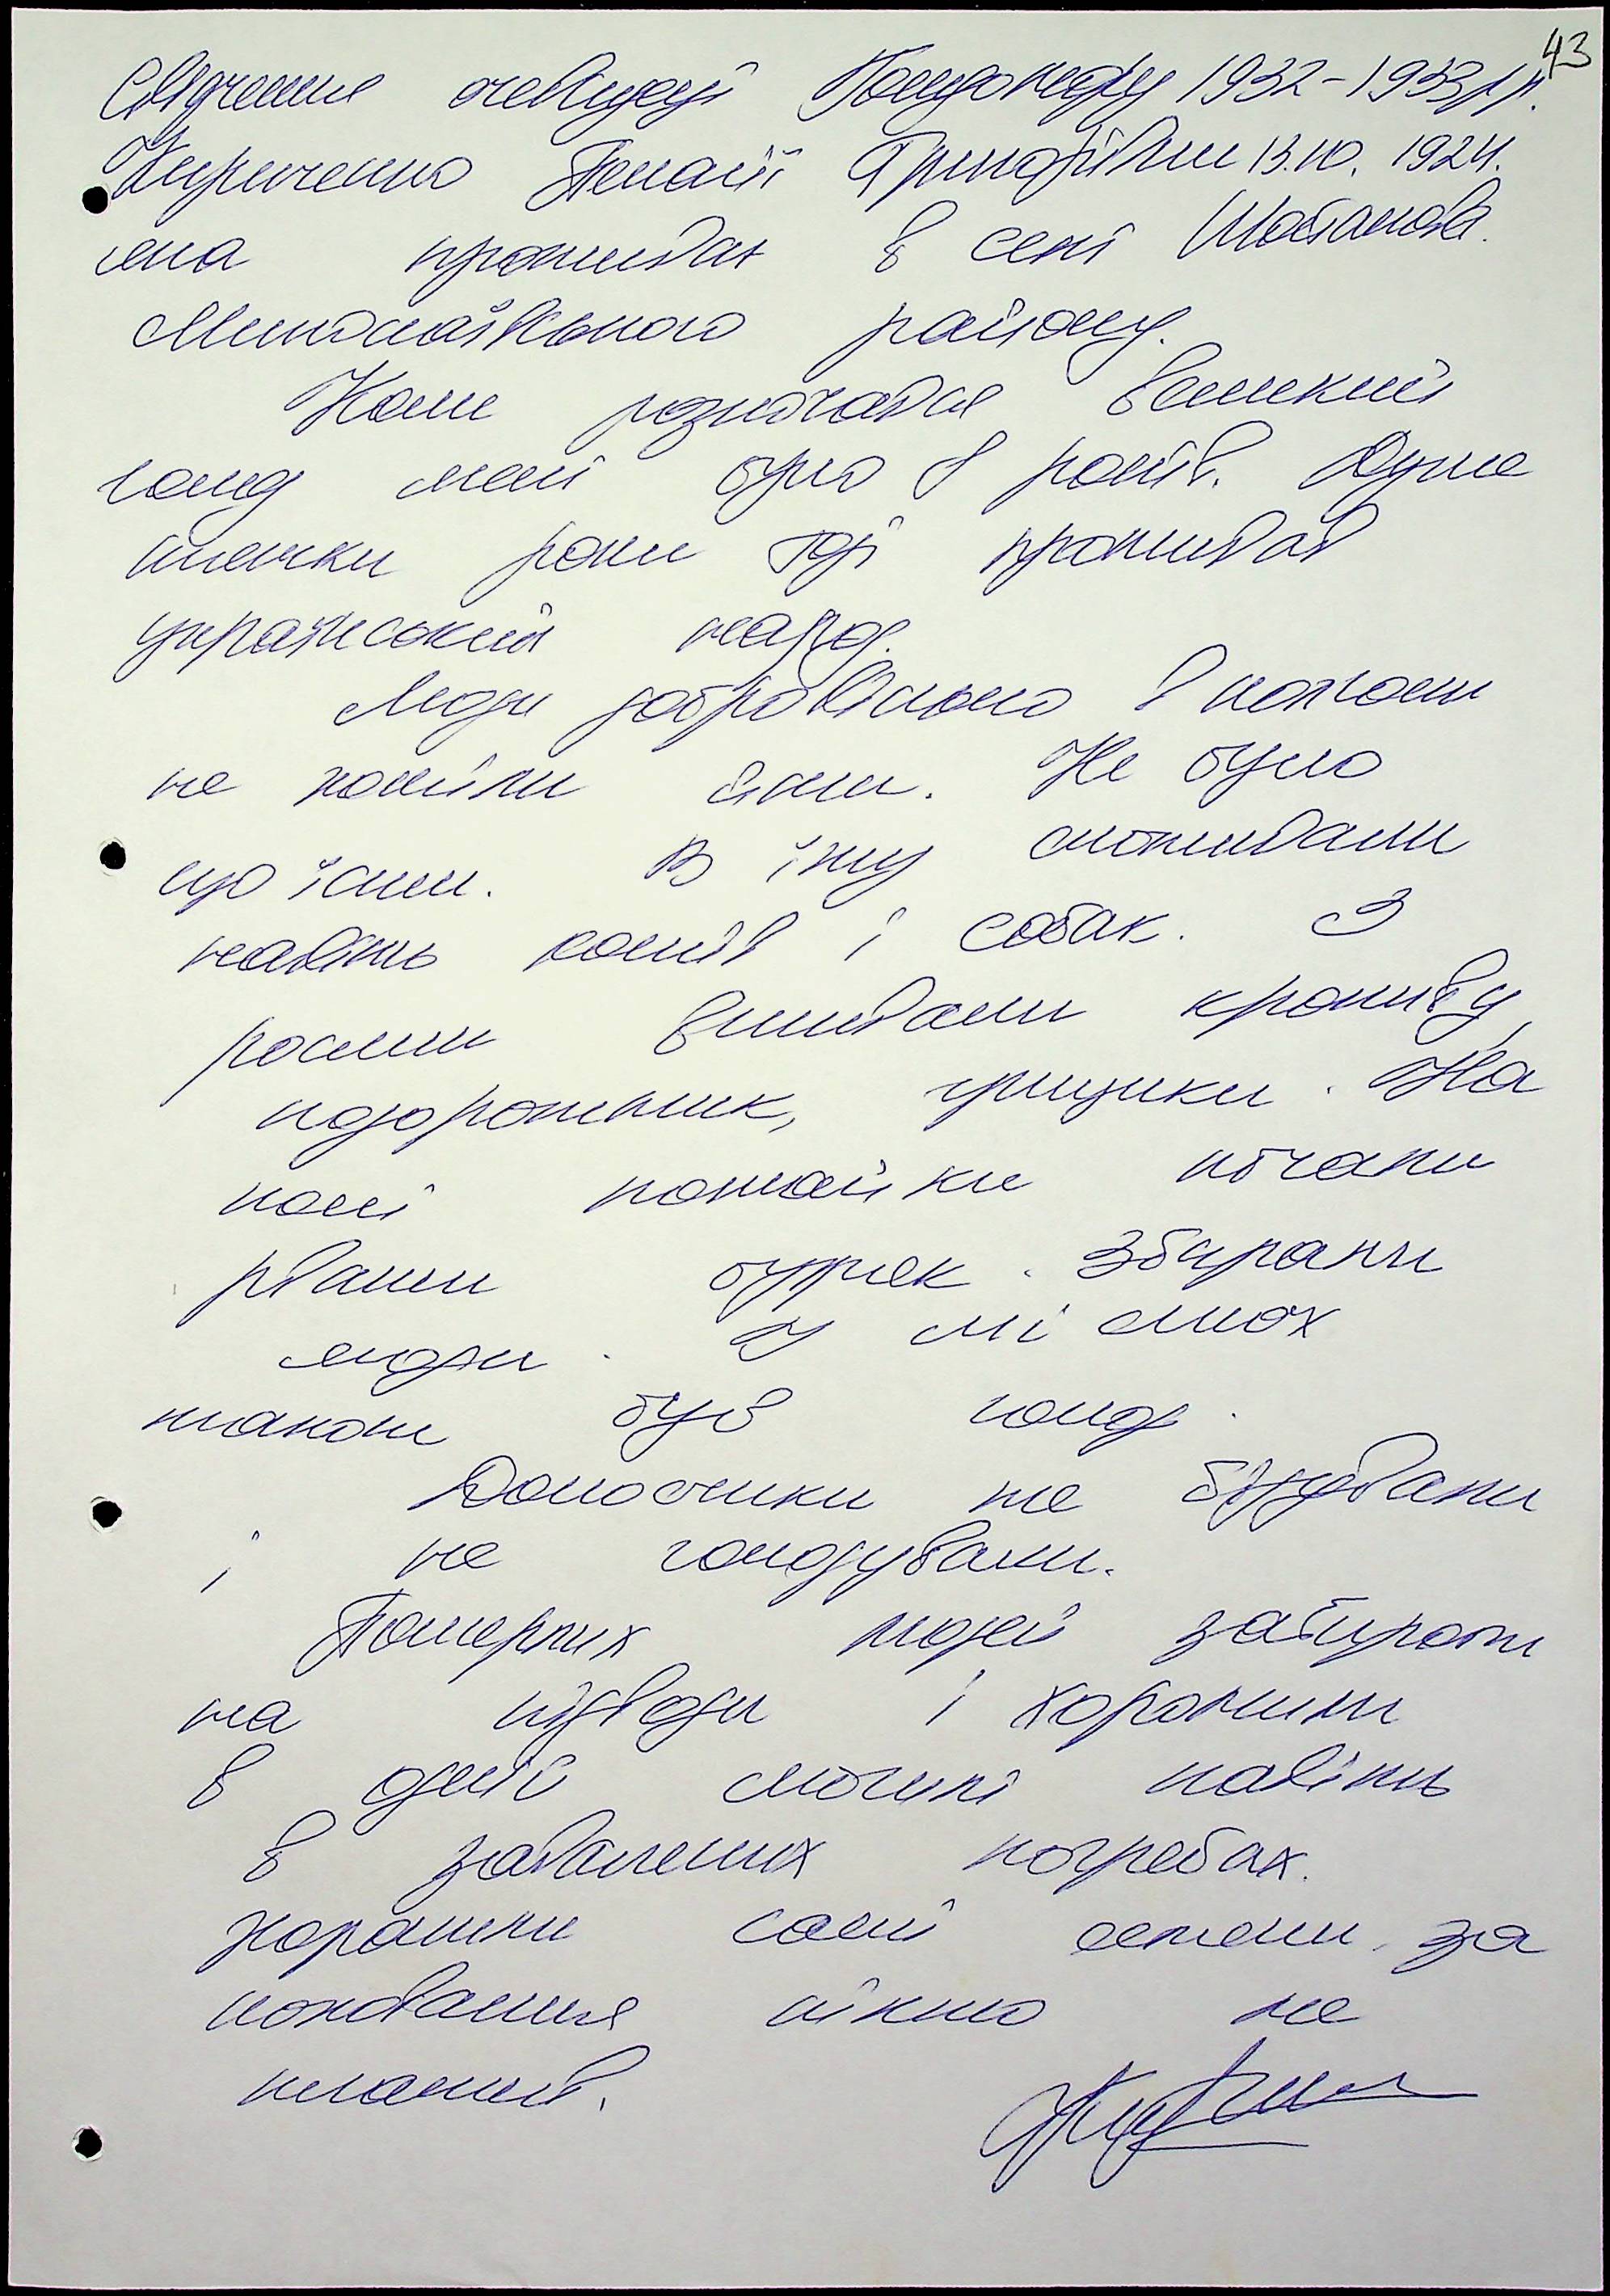 43
Свідчення очевидці Голодомору 1932-1933 рр.
Кириченко Пелагії Трифонівни 13.10. 1924.
яка проживає в селі
Миколаївського району.
Коли розпочався великий
голод мені було 8 років. Дуже
тяжкі роки тоді проживав
український народ.
Люди добровільно в колхоз
не хотіли йти. Не було
що їсти. В їжу споживали
навіть котів і собак. З
рослин вживали кропиву,
подорожник, грицики. На
полі потайки почали
рвати буряк. Збирали
люди. У містах
також був голод.
Доносчики не бідували
і не голодували.
Померлих людей забирали
на підводи і хоронили
в одній могилі навіть
в завалених погребах.
хоронили самі селяни. за
поховання ніхто не
платив.